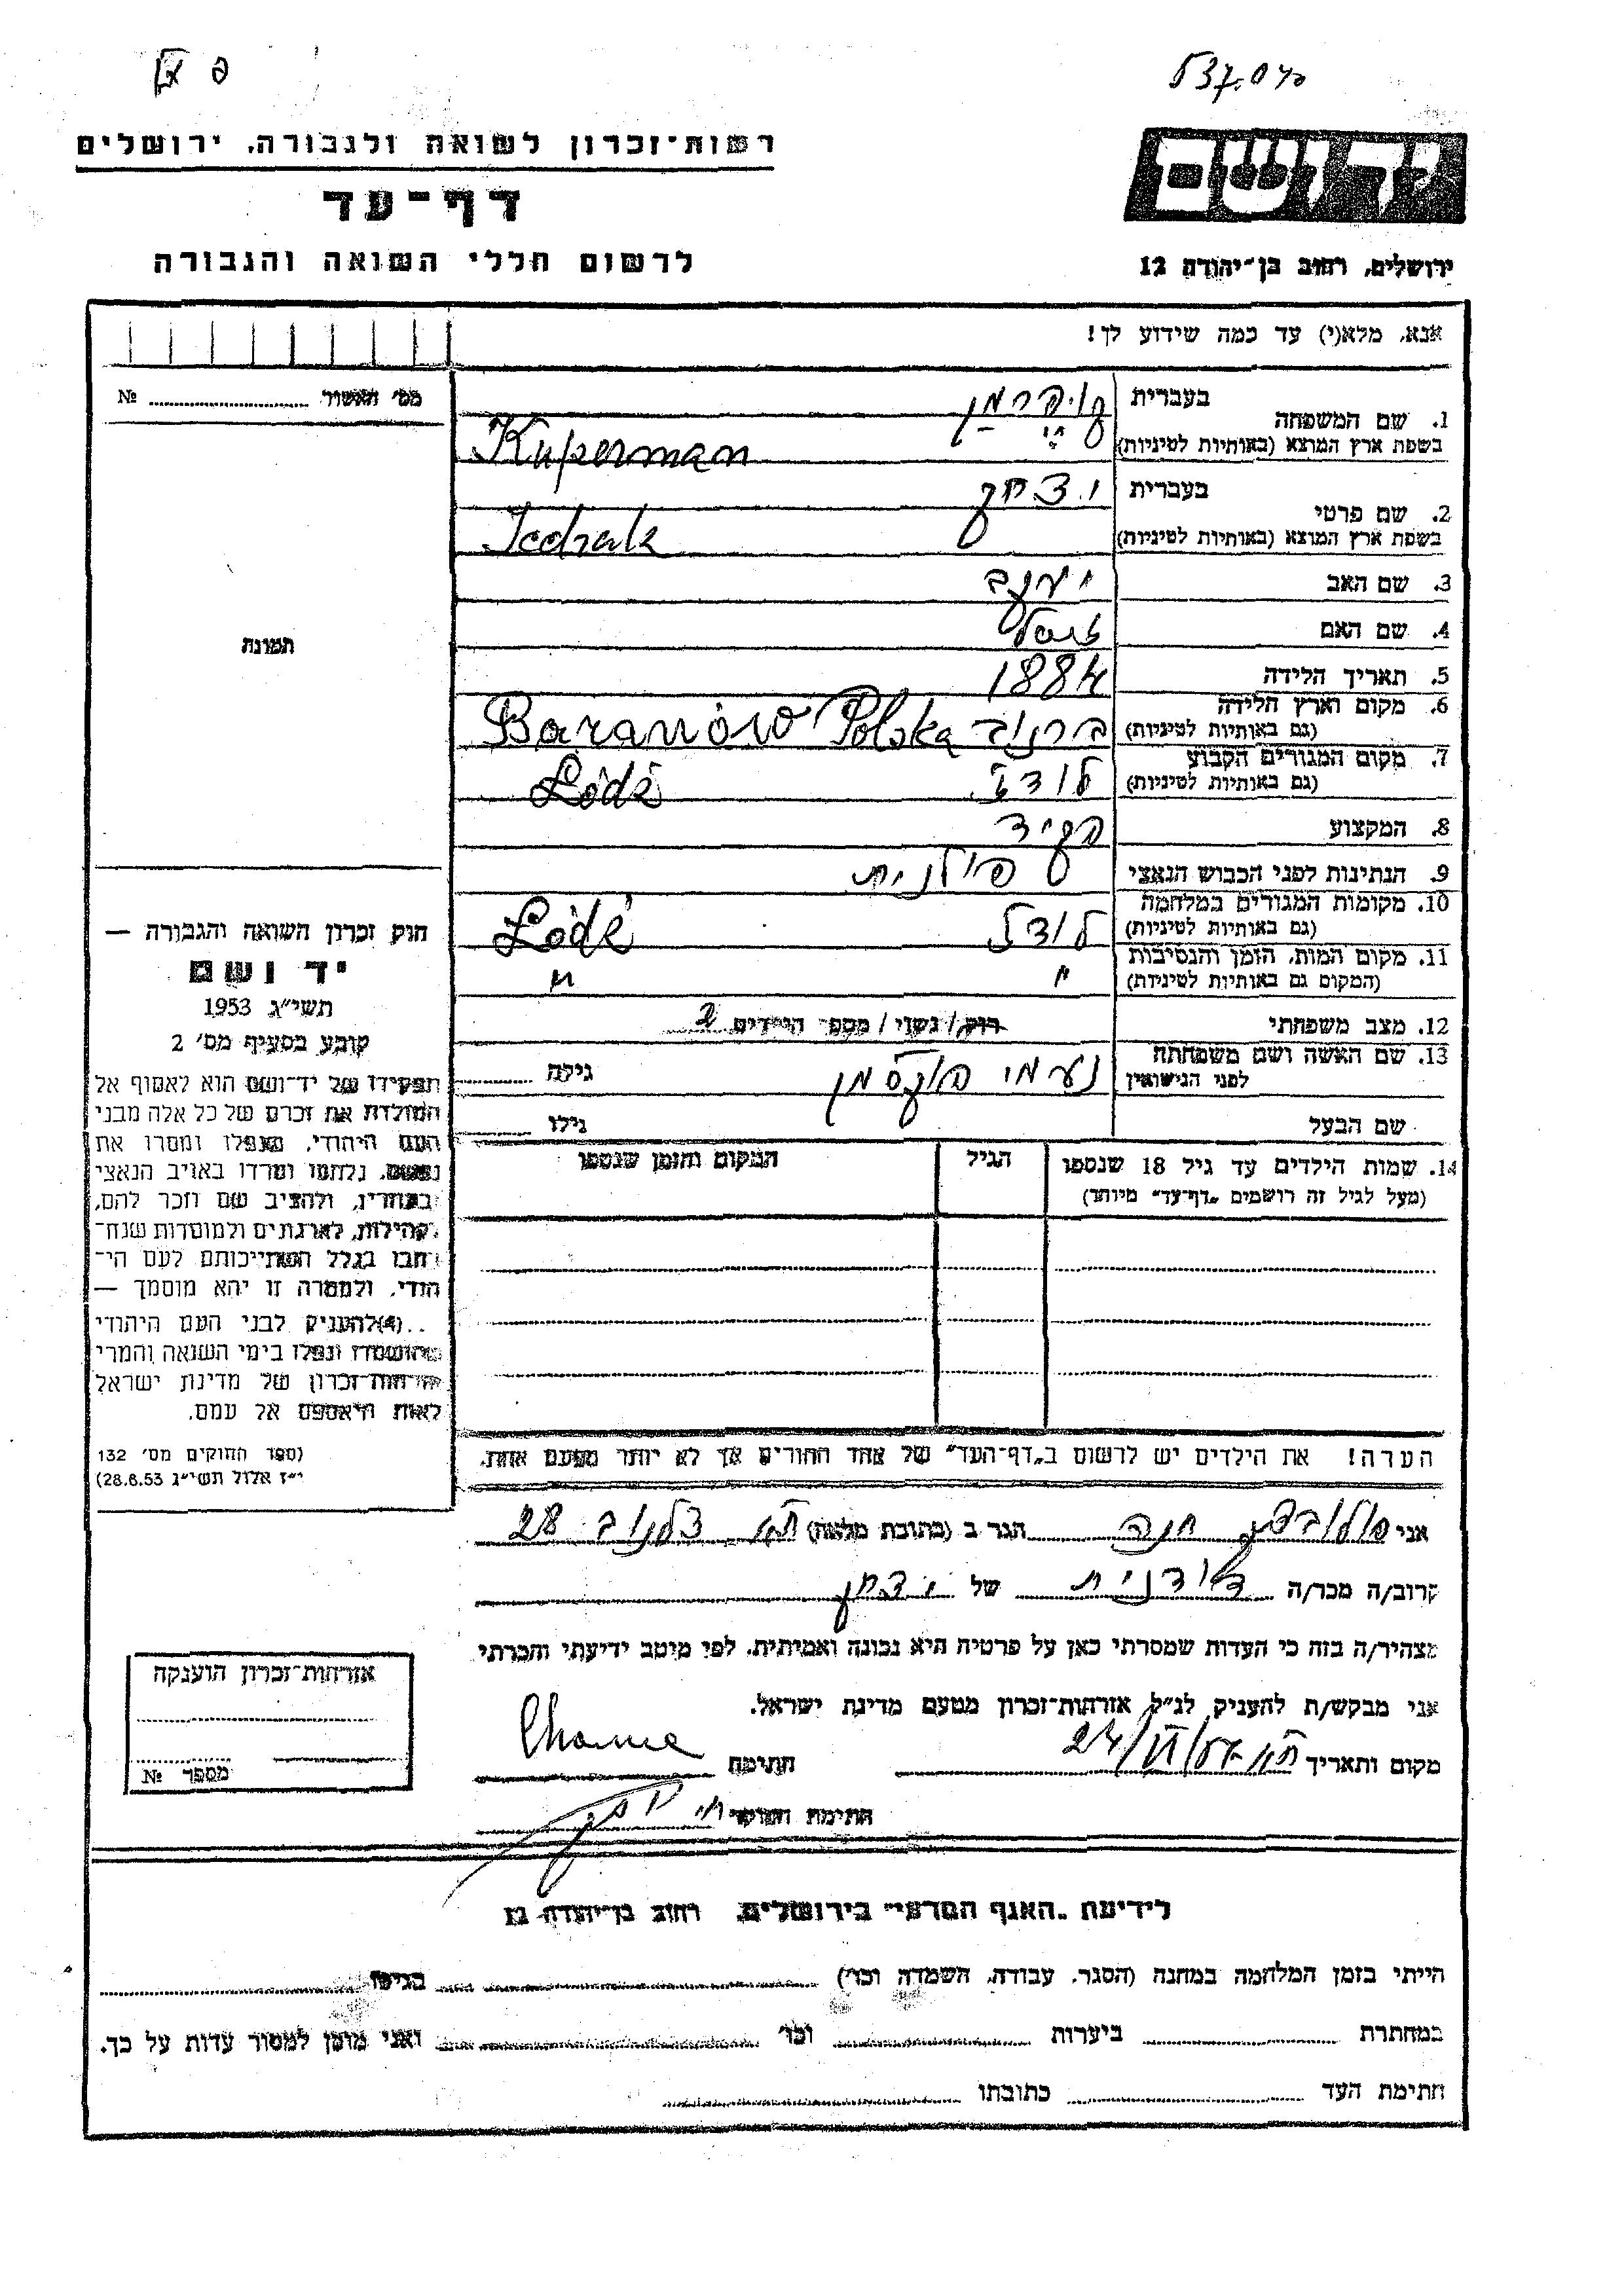 רשות־זכרון לשואה ולגבורה, ירושלים
דף־עד
לרשום חללי השואה והגבורה
יד ושם
ירושלים, רחוב בן־יהודה 12
אנא, מלא(י) עד כמה שידוע לך!
מס׳ האשור № 
1. שם המשפחה בעברית קופרמן
בשפת ארץ המוצא (באותיות לטיניות) Kuperman
2. שם פרטי בעברית יצחק
בשפת ארץ המוצא (באותיות לטיניות)
3. שם האב יעקב
4. שם האם
5. תאריך הלידה 1884
6. מקום וארץ הלידה (גם באותיות לטיניות) ברנוב Baranów Polska
7. מקום המגורים הקבוע (גם באותיות לטיניות) לודז Łódź
8. המקצוע פקיד
9. הנתינות לפני הכבוש הנאצי פולנית
10. מקומות המגורים במלחמה (גם באותיות לטיניות) לודז Łódź
11. מקום המות, הזמן והנסיבות (המקום גם באותיות לטיניות) " "
12. מצב משפחתי רווק/נשוי/מספר הילדים 2
13. שם האשה ושם משפחתה לפני הנישואין נעמי גילה
שם הבעל גילו
14. שמות הילדים עד גיל 18 שנספו הגיל המקום והזמן שנספו
(מעל לגיל זה רושמים „דף־עד" מיוחד)
הערה! את הילדים יש לרשום ב„דף־העד" של אחד ההורים אך לא יותר מפעם אחת.
תמונה
חוק זכרון השואה והגבורה —
יד ושם
תשי״ג 1953
קובע בסעיף מס׳ 2
תפקידו של יד־ושם הוא לאסוף אל
המולדת את זכרם של כל אלה מבני
העם היהודי, שנפלו ומסרו את
נפשם, נלחמו ומרדו באויב הנאצי
ובעוזריו, ולהציב שם וזכר להם,
לקהילות, לארגונים ולמוסדות שנח־
רבו בגלל השתייכותם לעם הי־
הודי, ולמטרה זו יהא מוסמך —
..(4)להעניק לבני העם היהודי
שהושמדו ונפלו בימי השואה והמרי
אזרחות־זכרון של מדינת ישראל
לאות היאספם אל עמם.
(ספר החוקים מס׳ 132
י״ז אלול תשי״ג 28.8.53)
אני חנה הגר ב (כתובת מלאה) 28
קרוב/ה מכר/ה של יצחק
מצהיר/ה בזה כי העדות שמסרתי כאן על פרטיה היא נכונה ואמיתית, לפי מיטב ידיעתי והכרתי
אני מבקש/ת להעניק לנ״ל אזרחות־זכרון מטעם מדינת ישראל.
מקום ותאריך חתימה
חתימת הפוקד
אזרחות־זכרון הוענקה
מספר №
לידיעת „האגף המדעי" בירושלים, רחוב בן־יהודה 12
הייתי בזמן המלחמה במחנה (הסגר, עבודה, השמדה וכו׳) בגיטו
במחתרת ביערות וכו׳ ואני מוכן למסור עדות על כך.
חתימת העד כתובתו